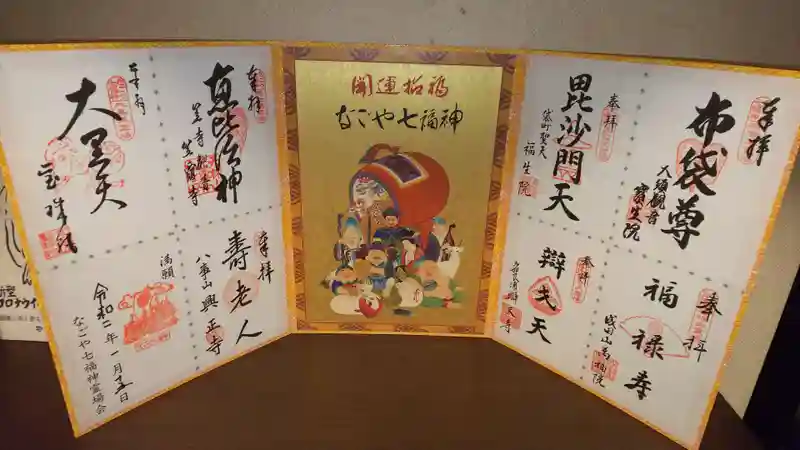 奉拝
布袋尊
大須観音
寳生院
奉拝
毘沙門天
袋町聖天
福生院
奉拝
福禄寿
成田山萬福院
奉拝
辯天
開運招福
なごや七福神
奉拝
恵比須神
笠寺観音
笠覆寺
奉拝
大黒天
宝珠院
奉拝
壽老人
八事山興正寺
満願
令和二年一月十五日
なごや七福神霊場会